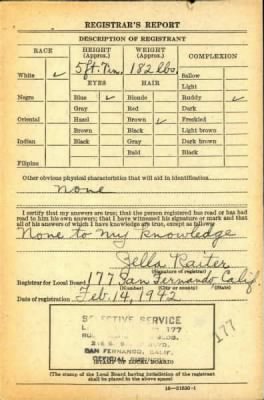 REGISTRAR'S REPORT
DESCRIPTION OF REGISTRANT
RACE HEIGHT (Approx.) WEIGHT (Approx.) COMPLEXION
White ✓ 5 ft. 182 lbs. Sallow
EYES HAIR Light
Negro Blue ✓ Blonde Ruddy ✓
Gray Red Dark
Oriental Hazel Brown ✓ Freckled
Brown Black Light brown
Indian Black Gray Dark brown
Bald Black
Filipino
Other obvious physical characteristics that will aid in identification
None
I certify that my answers are true; that the person registered has read or has had
read to him his own answers; that I have witnessed his signature or mark and that
all of his answers of which I have knowledge are true, except as follows:
None to my knowledge
Zella Raiter
(Signature of registrar)
Registrar for Local Board 177 San Fernando Calif.
(Number) (City or county) (State)
Date of registration Feb. 14, 1942
SELECTIVE SERVICE
177
BLDG.
SAN FERNANDO, CALIF.
OFFICIAL BUSINESS
(STAMP OF LOCAL BOARD)
177
(The stamp of the Local Board having jurisdiction of the registrant
shall be placed in the above space.)
16—21630-1